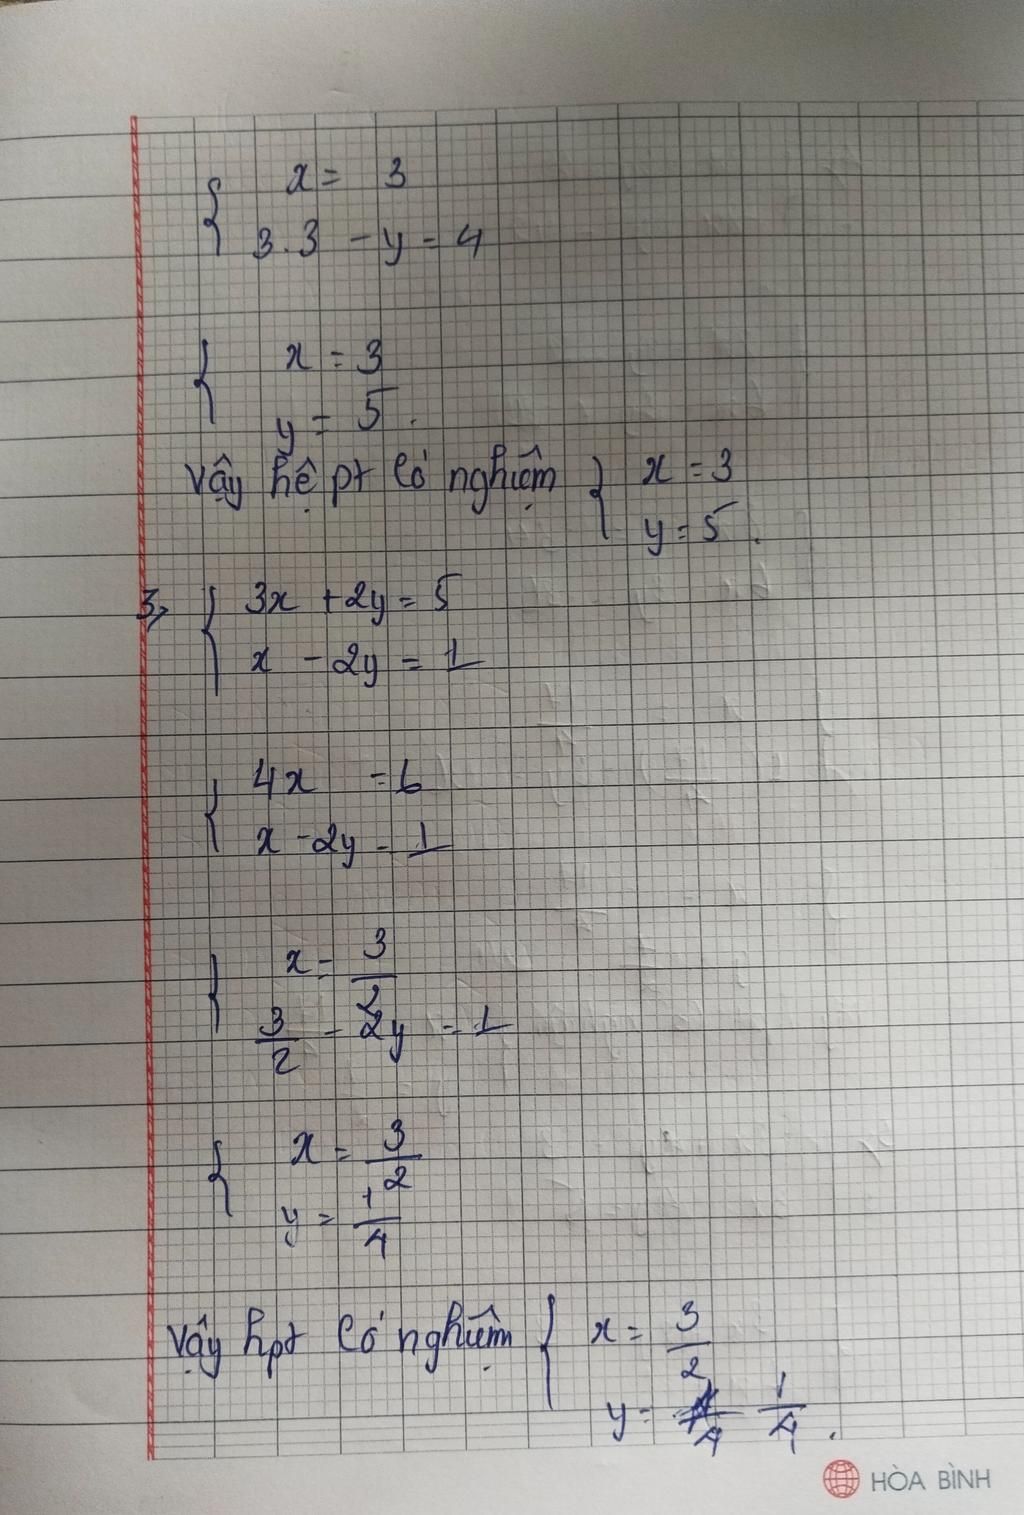 { x = 3
3.3 - y = 4
{ x = 3
y = 5.
Vậy hệ pt có nghiệm { x = 3
y = 5.
3, { 3x + 2y = 5
x - 2y = 1
{ 4x = 6
x - 2y = 1
{ x = 3/2
3/2 - 2y = 1
{ x = 3/2
y = 1/4
Vậy hpt có nghiệm { x = 3/2
y = 1/4.
HÒA BÌNH